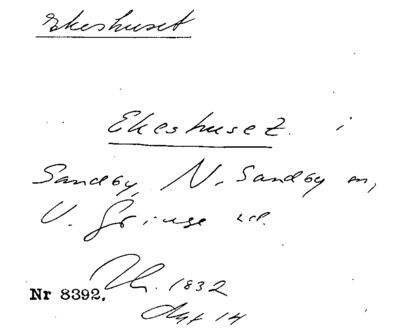 Ekeshuset
Ekeshuset i
Sandby, N. Sandby sn,
V. Göinge hd.
Nr 8392. 1832